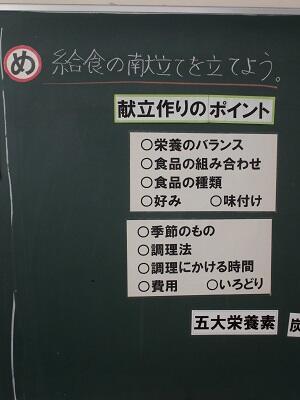 め 給食の献立てを立てよう。
献立作りのポイント
○栄養のバランス
○食品の組み合わせ
○食品の種類
○好み ○味付け
○季節のもの
○調理法
○調理にかける時間
○費用 ○いろどり
五大栄養素 炭